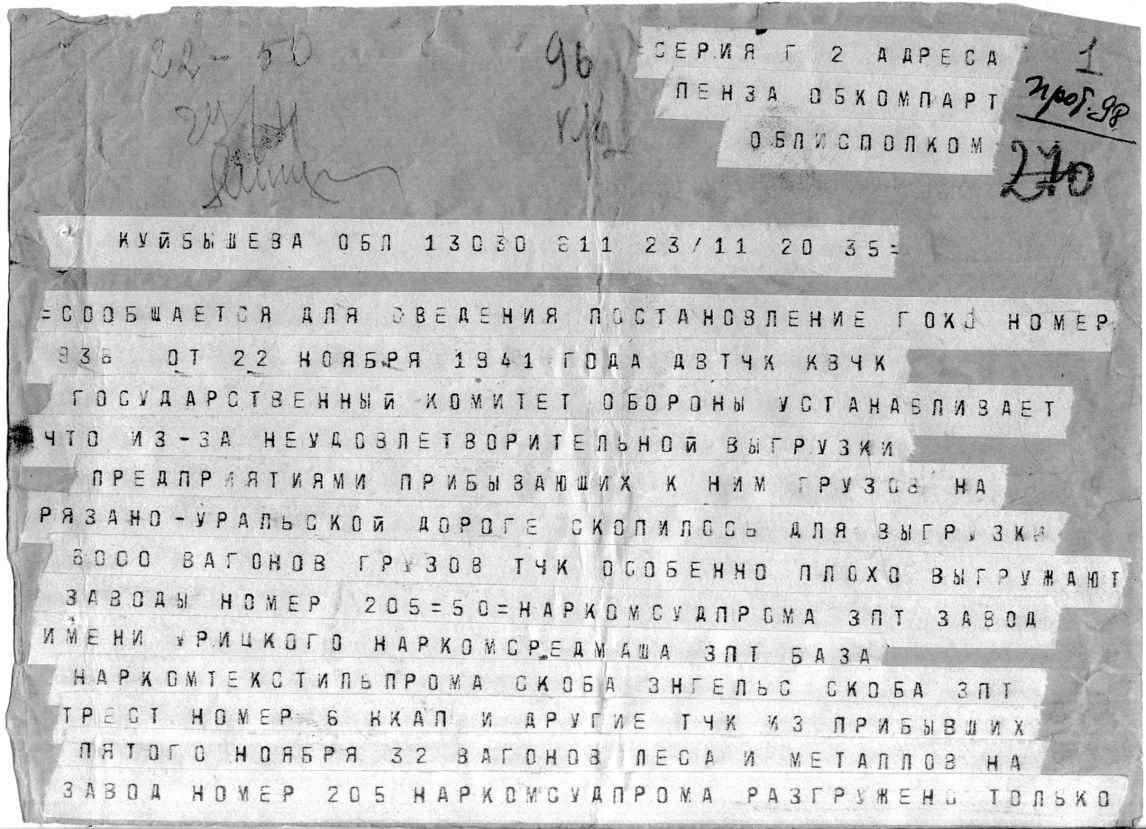 22-50
96
1
=СЕРИЯ Г 2 АДРЕСА
ПЕНЗА ОБКОМПАРТ
прот. 98
ОБЛИСПОЛКОМ
270
КУЙБЫШЕВА ОБЛ 13030 811 23/11 20 35=
=СООБШАЕТСЯ ДЛЯ СВЕДЕНИЯ ПОСТАНОВЛЕНИЕ ГОКО НОМЕР
938 ОТ 22 НОЯБРЯ 1941 ГОДА ДВТЧК КВЧК
ГОСУДАРСТВЕННЫЙ КОМИТЕТ ОБОРОНЫ УСТАНАВЛИВАЕТ
ЧТО ИЗ-ЗА НЕУДОВЛЕТВОРИТЕЛЬНОЙ ВЫГРУЗКИ
ПРЕДПРИЯТИЯМИ ПРИБЫВАЮШИХ К НИМ ГРУЗОВ НА
РЯЗАНО-УРАЛЬСКОЙ ДОРОГЕ СКОПИЛОСЬ ДЛЯ ВЫГРУЗКИ
6000 ВАГОНОВ ГРУЗОВ ТЧК ОСОБЕННО ПЛОХО ВЫГРУЖАЮТ
ЗАВОДЫ НОМЕР 205=50=НАРКОМСУДПРОМА ЗПТ ЗАВОД
ИМЕНИ УРИЦКОГО НАРКОМСРЕДМАША ЗПТ БАЗА
НАРКОМТЕКСТИЛЬПРОМА СКОБА ЭНГЕЛЬС СКОБА ЗПТ
ТРЕСТ НОМЕР 6 НКАП И ДРУГИЕ ТЧК ИЗ ПРИБЫВШИХ
ПЯТОГО НОЯБРЯ 32 ВАГОНОВ ЛЕСА И МЕТАЛЛОВ НА
ЗАВОД НОМЕР 205 НАРКОМСУДПРОМА РАЗГРУЖЕНО ТОЛЬКО